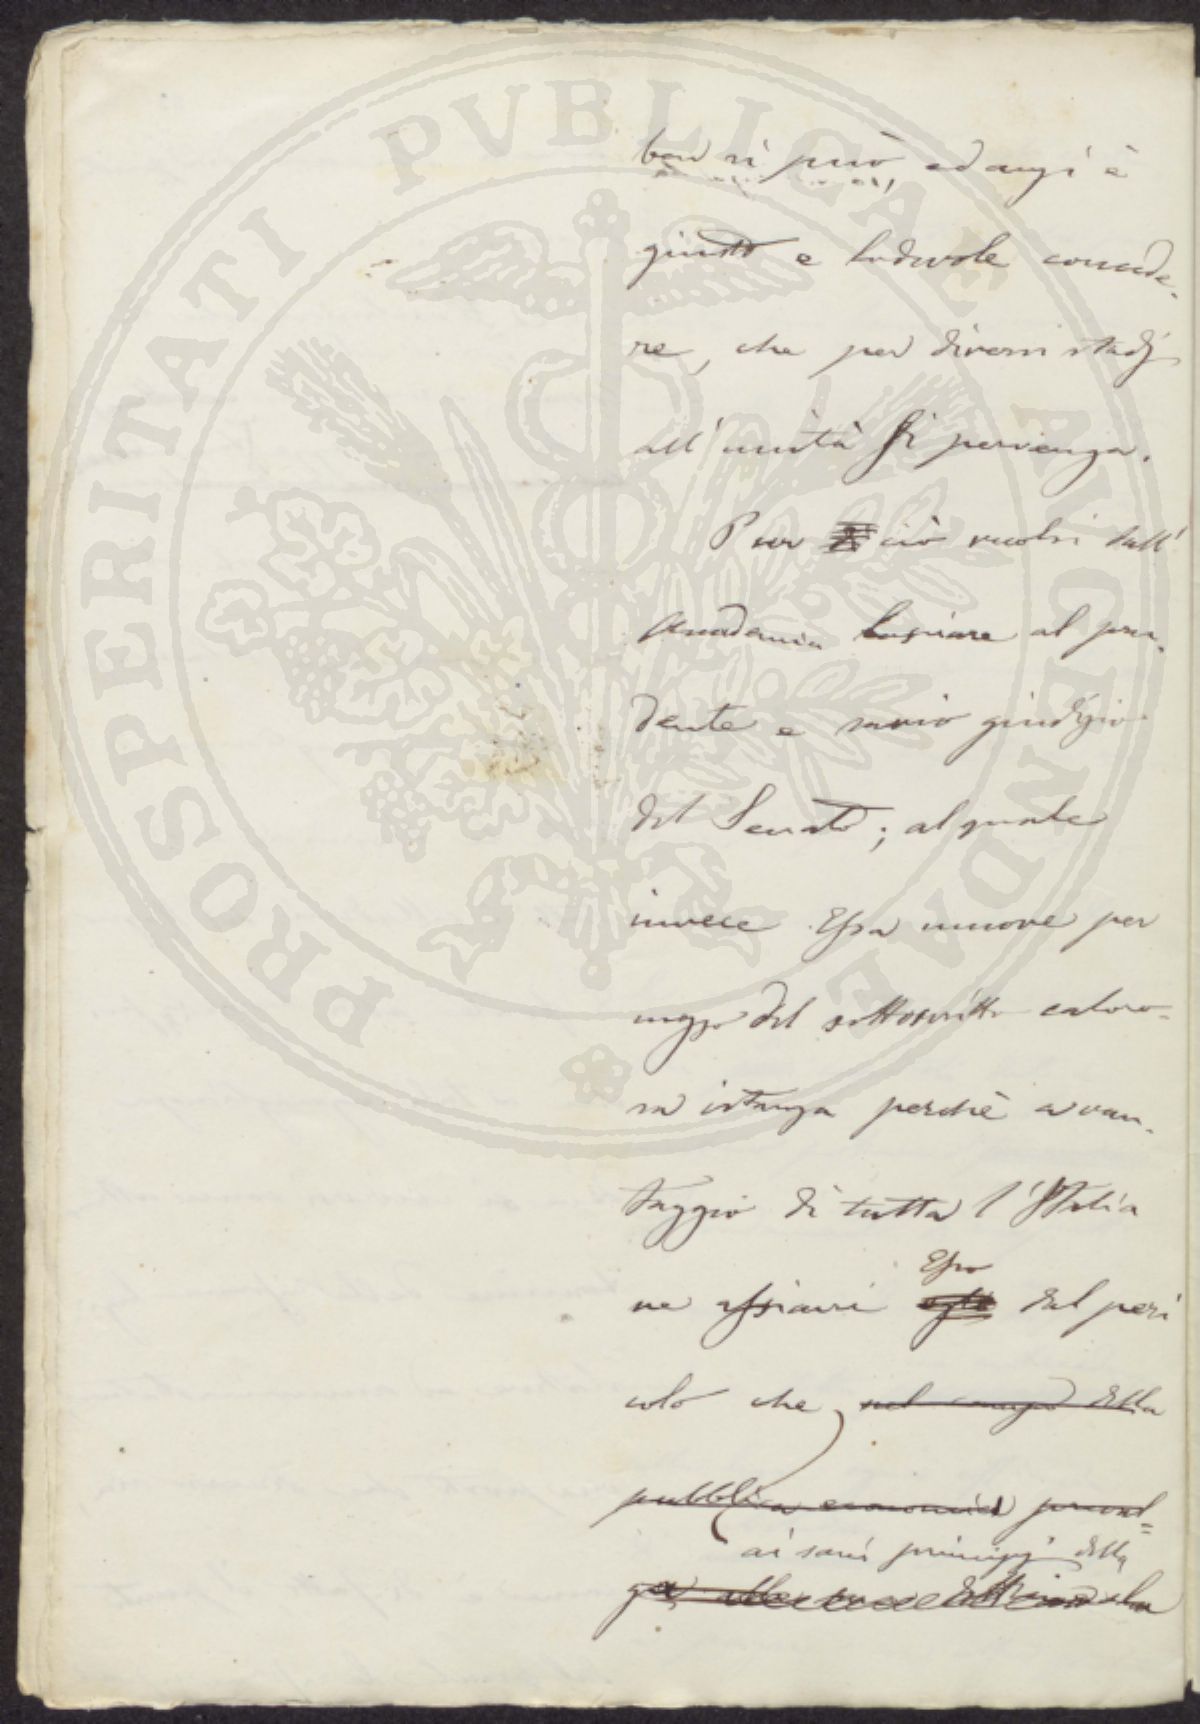 PROSPERITATI PVBLICAE AVGENDAE
ben si può, ed anzi è
giusto e lodevole concede-
re, che per diversi stadj
all'unità si pervenga.
Pur ciò vuolsi dall'
Accademia lasciare al pru-
dente e savio giudizio
del Senato; al quale
invece Essa muove per
mezzo del sottoscritto caloro-
sa istanza perchè a van-
taggio di tutta l'Italia
Esso
ne assicuri egli dal peri
colo che nel campo della
pubblica economia preval-
ai sani principj della
ga alle dottrina